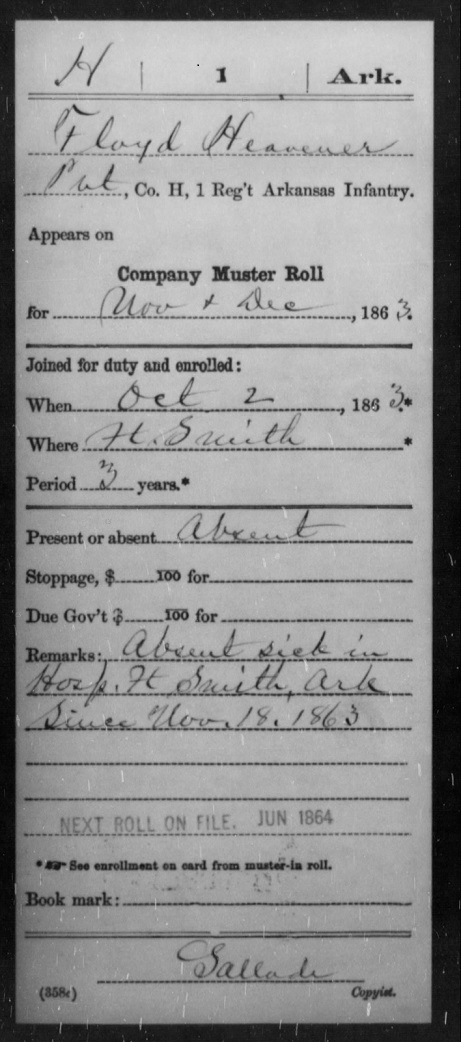 H | 1 | Ark.
Floyd Heavener
Pvt, Co. H, 1 Reg't Arkansas Infantry.
Appears on
Company Muster Roll
for Nov & Dec, 1863.
Joined for duty and enrolled:
When Oct 2, 1863.*
Where Ft. Smith *
Period 3 years.*
Present or absent Absent
Stoppage, $ 100 for
Due Gov't $ 100 for
Remarks: Absent sick in
Hosp. Ft Smith, Ark
Since Nov. 18. 1863
NEXT ROLL ON FILE, JUN 1864
* See enrollment on card from muster-in roll.
Book mark:
Sallade
(358c) Copyist.